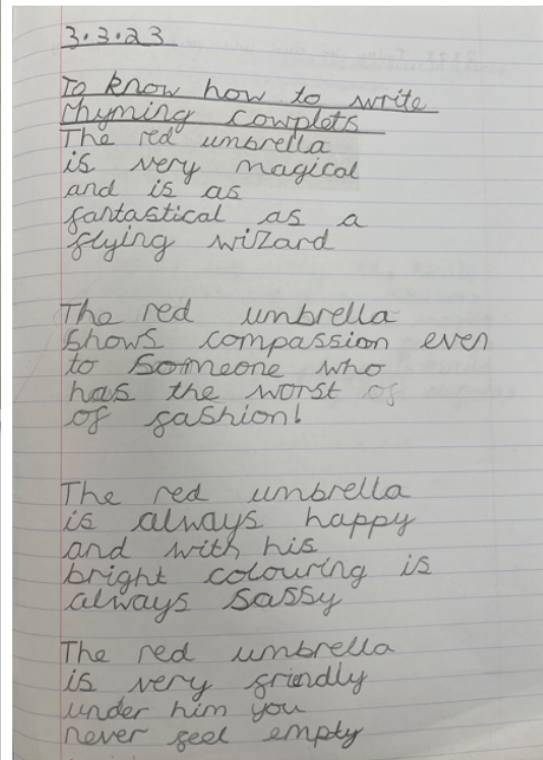 3.3.23
To know how to write
rhyming cowplets
The red umbrella
is very magical
and is as
fantastical as a
flying wizard
The red umbrella
shows compassion even
to someone who
has the worst of
of fashion!
The red umbrella
is always happy
and with his
bright colouring is
always sassy
The red umbrella
is very frindly
under him you
never feel empty